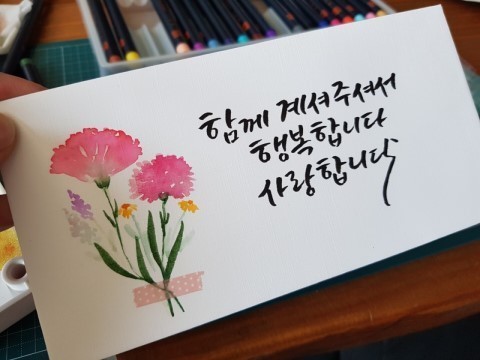 함께 계셔주셔서
행복합니다
사랑합니다